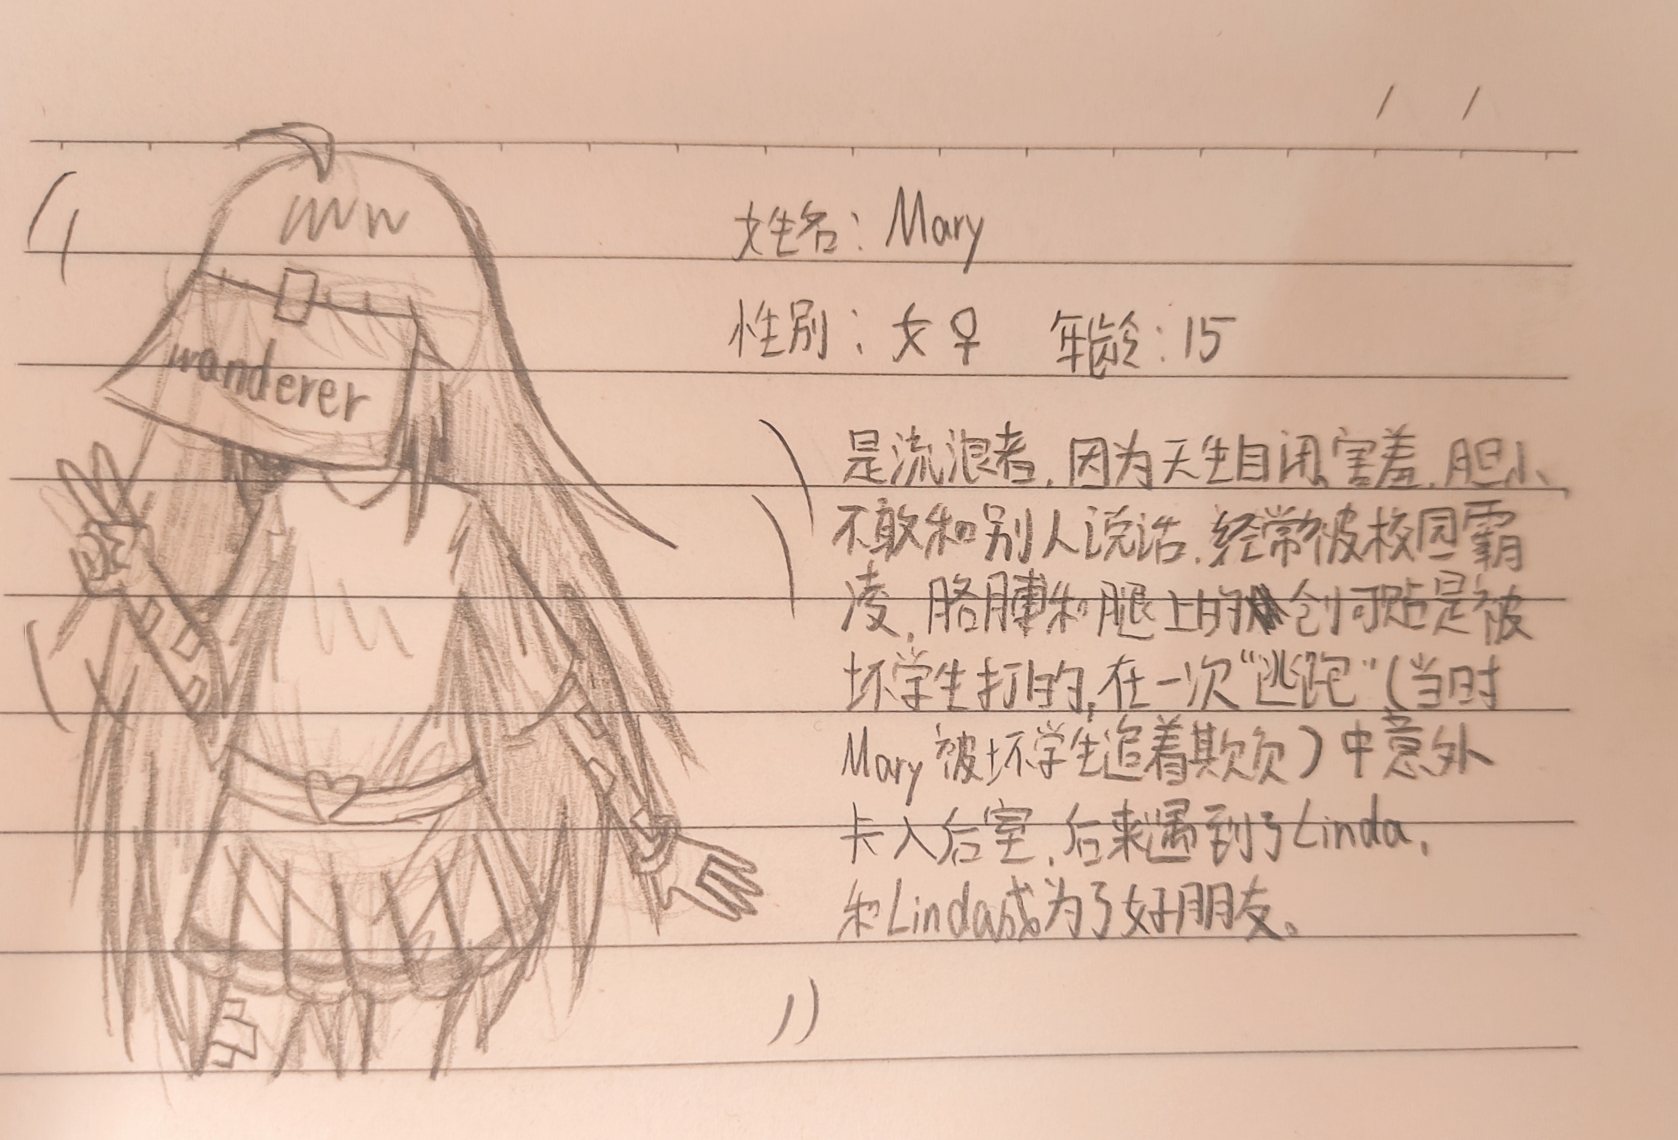 wanderer
姓名：Mary
性别：女♀ 年龄：15
是流浪者，因为天生自闭、害羞，胆小、
不敢和别人说话，经常被校园霸
凌，胳膊和腿上的创可贴是被
坏学生打的，在一次“逃跑”(当时
Mary被坏学生追着欺负)中意外
卡入后室，后来遇到了Linda，
和Linda成为了好朋友。